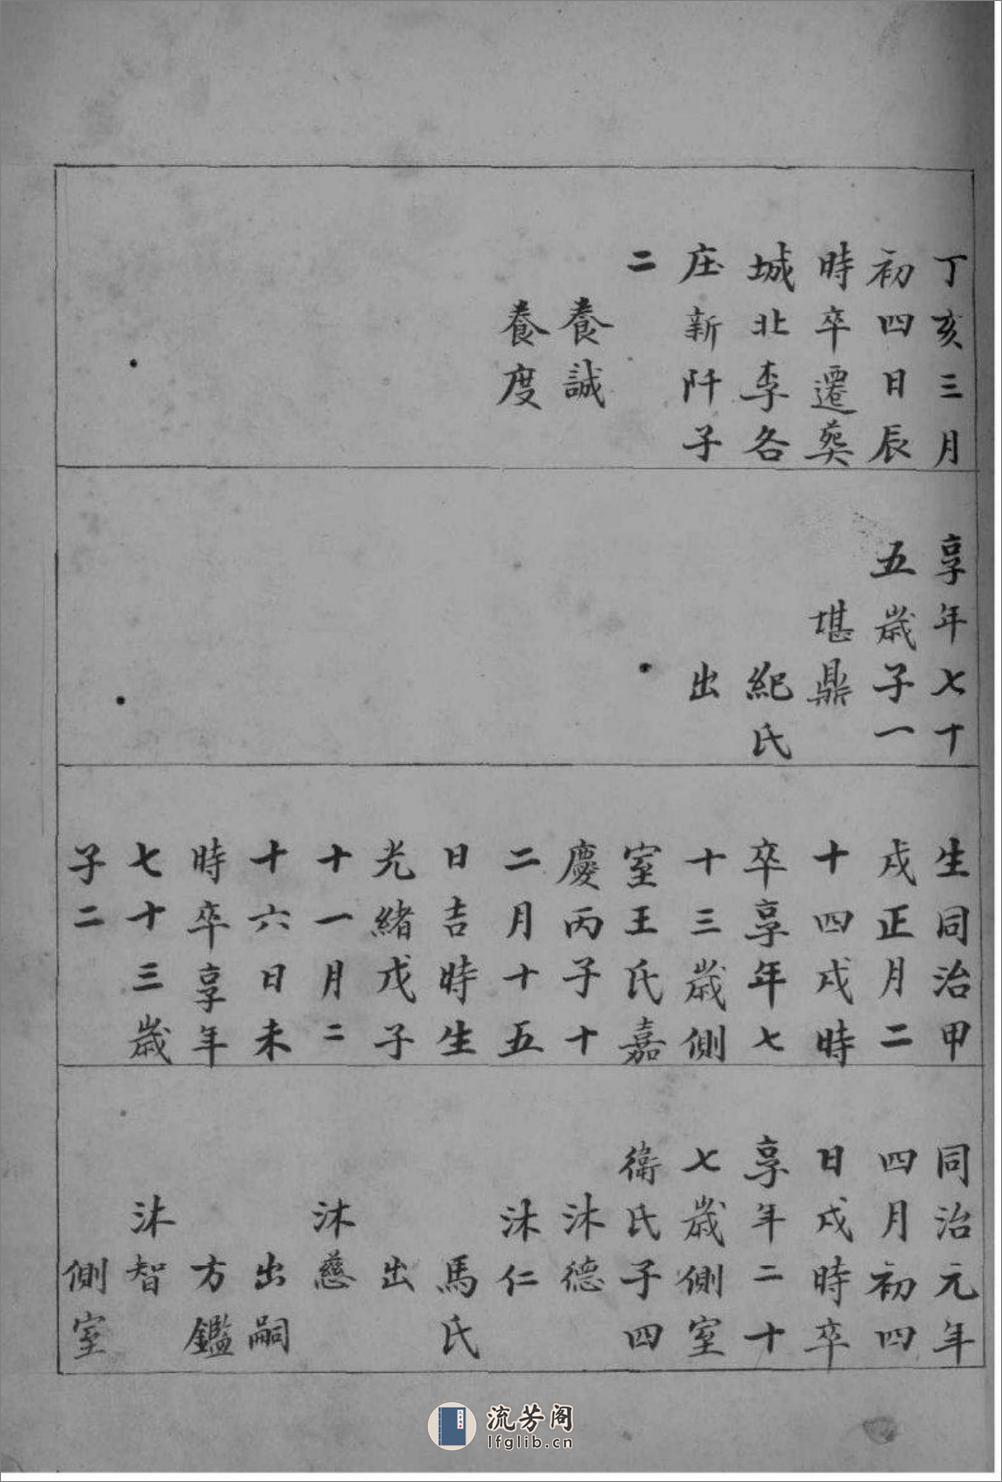 丁亥三月
初四日辰
時卒遷葵
城北李各
庄新阡子
二
養誠
養度
享年七十
五歲子一
堪鼎
紀氏
出
生同治甲
戌正月二
十四戌時
卒享年七
十三歲側
室王氏嘉
慶丙子十
二月十五
日吉時生
光緒戊子
十一月二
十六日未
時卒享年
七十三歲
子二
同治元年
四月初四
日戌時卒
享年二十
七歲側室
衛氏子四
沐德
沐仁
馬氏
出
沐慈
出嗣
方鑑
沐智
側室
流芳阁
lfglib.cn